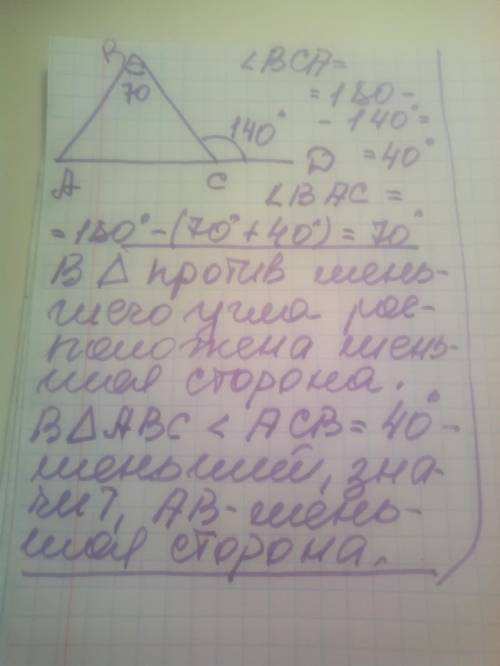 B
70
A
C
140°
D
∠BCA=
=180-
-140°=
=40°
∠BAC =
=180°-(70°+40°)=70°
В △ против мень-
шего угла рас-
положена мень-
шая сторона.
В △ABC ∠ACB=40°-
меньший, зна-
чит, AB-мень-
шая сторона.